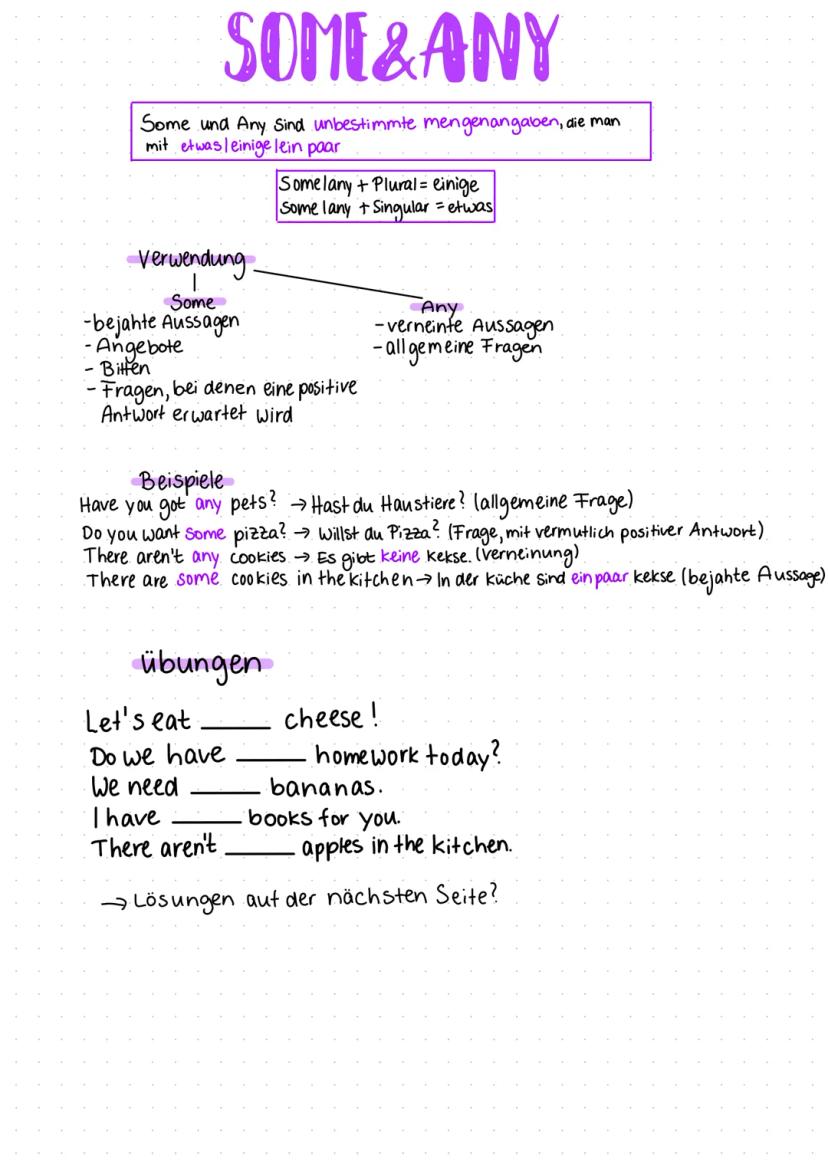 SOME & ANY
Some und Any sind unbestimmte mengenangaben, die man
mit etwas/einige/ein paar
Some/any + Plural = einige
Some/any + Singular = etwas
Verwendung
Some
-bejahte Aussagen
- Angebote
- Bitten
- Fragen, bei denen eine positive
Antwort erwartet wird
Any
-verneinte Aussagen
-allgemeine Fragen
Beispiele
Have you got any pets? → Hast du Haustiere? (allgemeine Frage)
Do you want some pizza? → Willst du Pizza? (Frage, mit vermutlich positiver Antwort)
There aren't any cookies → Es gibt keine kekse. (Verneinung)
There are some cookies in the kitchen → In der küche sind ein paar kekse (bejahte Aussage)
übungen
Let's eat _____ cheese!
Do we have _____ homework today?
We need _____ bananas.
I have _____ books for you.
There aren't _____ apples in the kitchen.
→ Lösungen auf der nächsten Seite?